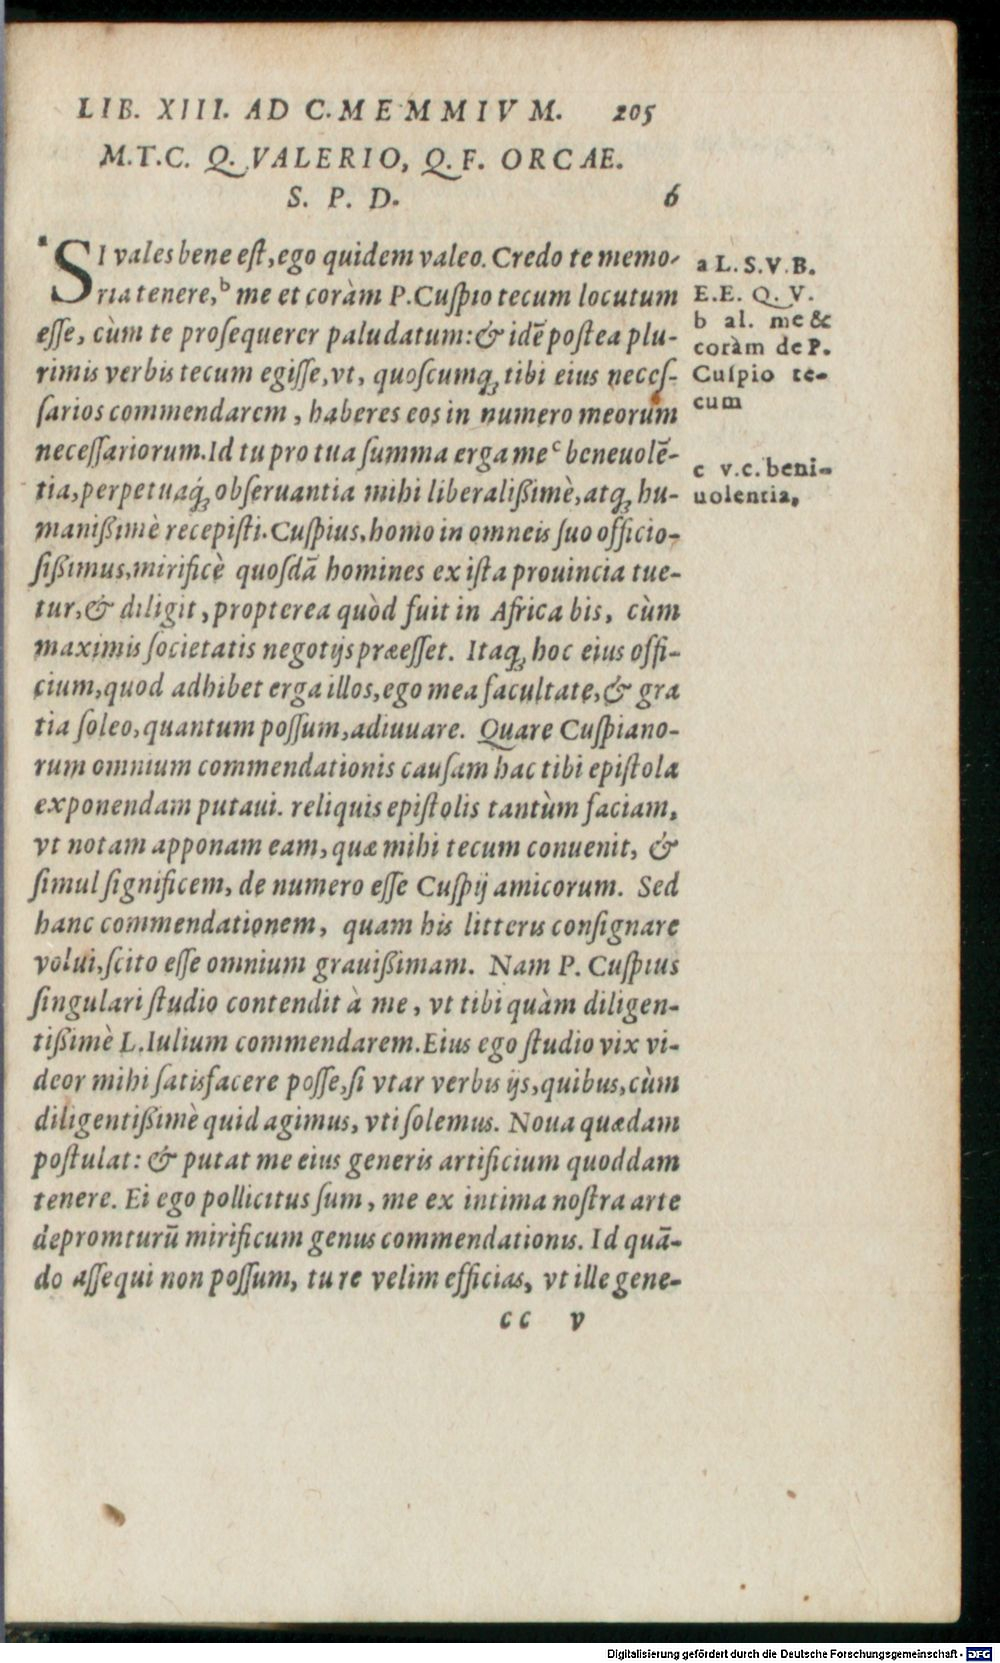 LIB. XIII. AD C. MEMMIVM. 205
M.T.C. Q. VALERIO, Q. F. ORCAE.
S. P. D. 6
ᵃSI vales bene est, ego quidem valeo. Credo te memo-
ria tenere,ᵇ me et coràm P. Cuspio tecum locutum
esse, cùm te prosequerer paludatum: & idē postea plu-
rimis verbis tecum egisse, vt, quoscumq; tibi eius neces-
sarios commendarem, haberes eos in numero meorum
necessariorum. Id tu pro tua summa erga meᶜ beneuolē-
tia, perpetuaq́; obseruantia mihi liberalißimè, atq; hu-
manißimè recepisti. Cuspius, homo in omneis suo officio-
sißimus, mirificè quosdā homines ex ista prouincia tue-
tur, & diligit, propterea quòd fuit in Africa bis, cùm
maximis societatis negotijs præesset. Itaq; hoc eius offi-
cium, quod adhibet erga illos, ego mea facultate, & gra
tia soleo, quantum possum, adiuuare. Quare Cuspiano-
rum omnium commendationis causam hac tibi epistola
exponendam putaui. reliquis epistolis tantùm faciam,
vt notam apponam eam, quæ mihi tecum conuenit, &
simul significem, de numero esse Cuspij amicorum. Sed
hanc commendationem, quam his litteris consignare
volui, scito esse omnium grauißimam. Nam P. Cuspius
singulari studio contendit à me, vt tibi quàm diligen-
tißimè L. Iulium commendarem. Eius ego studio vix vi-
deor mihi satisfacere posse, si vtar verbis ijs, quibus, cùm
diligentißimè quid agimus, vti solemus. Noua quædam
postulat: & putat me eius generis artificium quoddam
tenere. Ei ego pollicitus sum, me ex intima nostra arte
depromturū mirificum genus commendationis. Id quā-
do assequi non possum, tu re velim efficias, vt ille gene-
cc v
a L. S. V. B.
E. E. Q. V.
b al. me &
coràm de P.
Cuspio te-
cum
c v. c. beni-
uolentia,
Digitalisierung gefördert durch die Deutsche Forschungsgemeinschaft - DFG